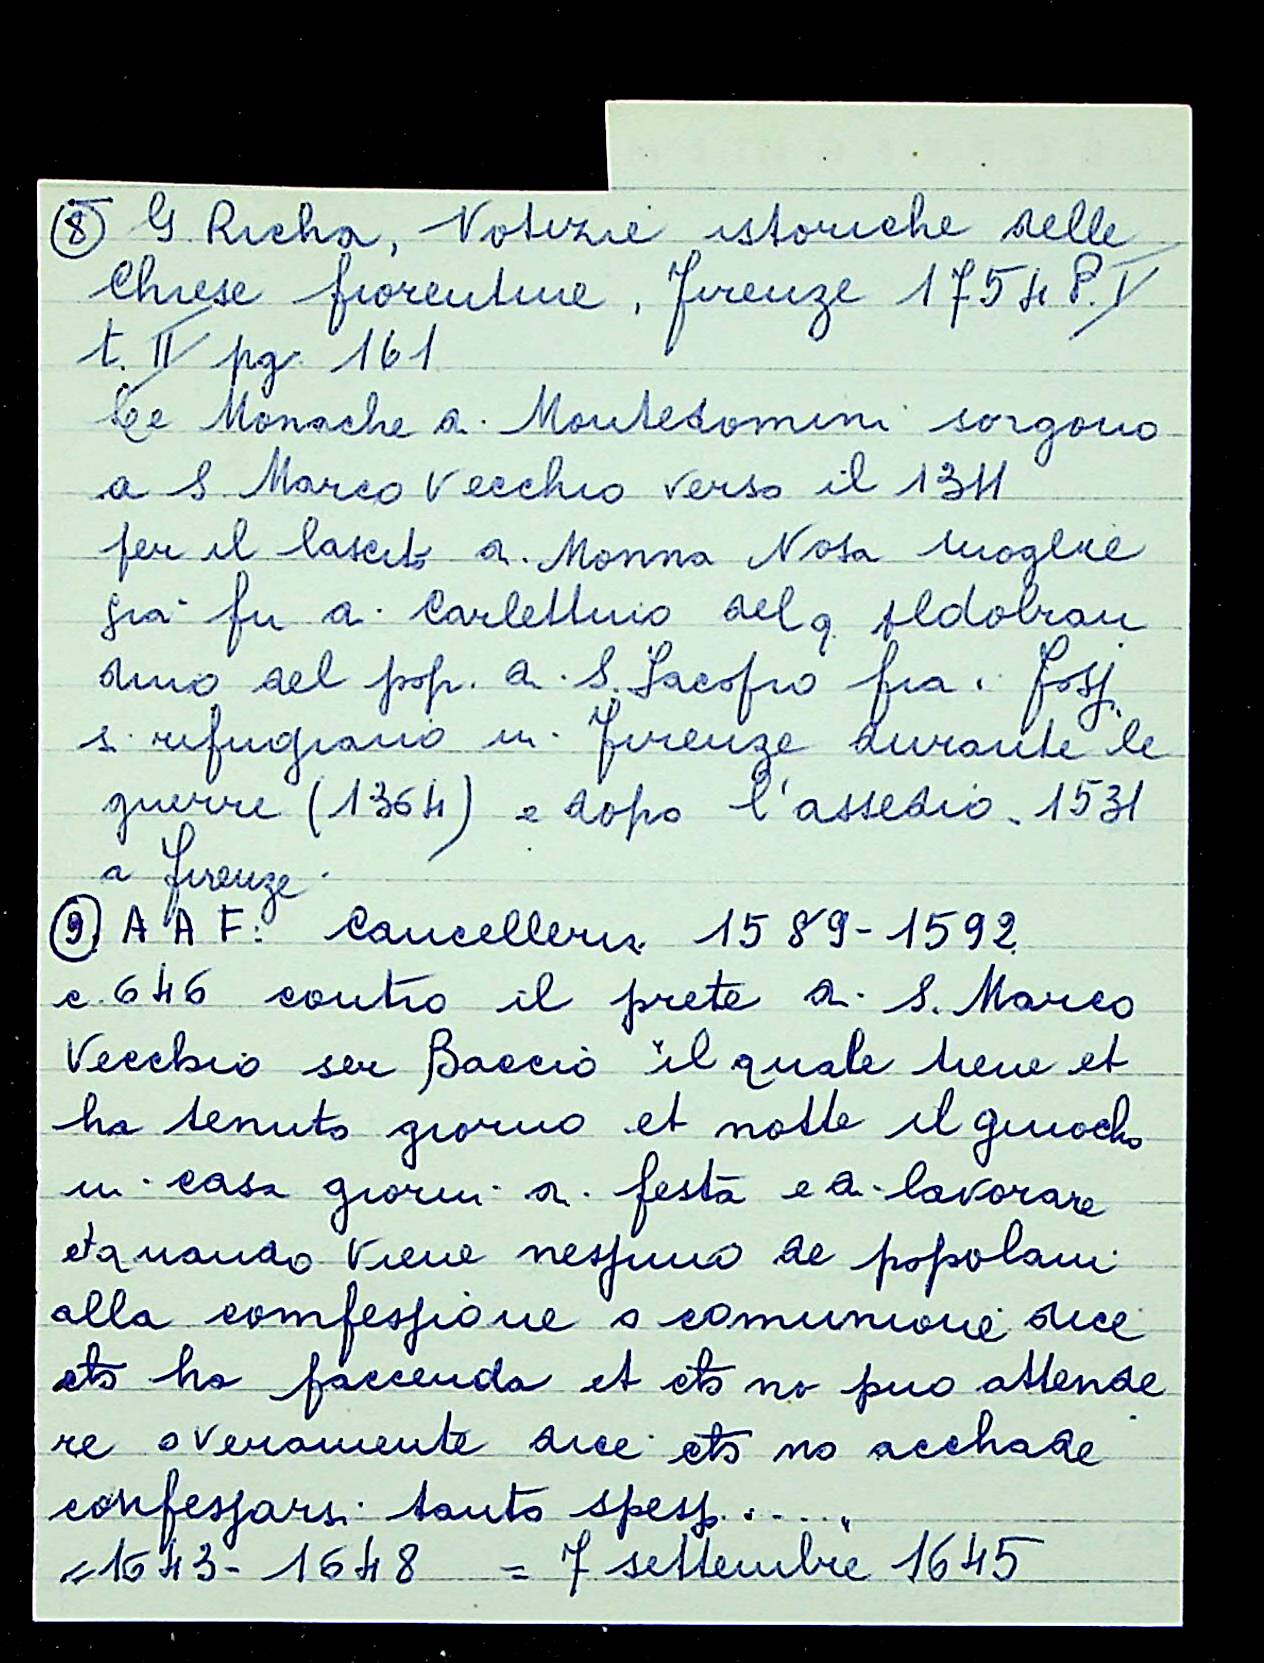 ⑧ G Richa, Notizie istoriche delle
Chiese fiorentine, Firenze 1754 P. V
t. II pg. 161
Le Monache di Montedomini sorgono
a S Marco Vecchio verso il 1341
per il lascito di Monna Nosa moglie
già fu di Carlettino del q Aldobran
dino del pop. di S. Jacopo fra i fossi
si rifugiano in Firenze durante le
guerre (1364) e dopo l'assedio 1531
a Firenze.
⑨ A A F: Cancelleria 1589-1592
c. 646 contro il prete di S. Marco
Vecchio ser Baccio "il quale tiene et
ha tenuto giorno et notte il giuocho
in casa giorni di festa e di lavorare
et quando viene nessuno de popolani
alla comfessione o comunione dice
che ha faccenda et che no puo attende
re overamente dice che no acchade
confessarsi tanto spess.....
= 1643-1648 = 7 settembre 1645